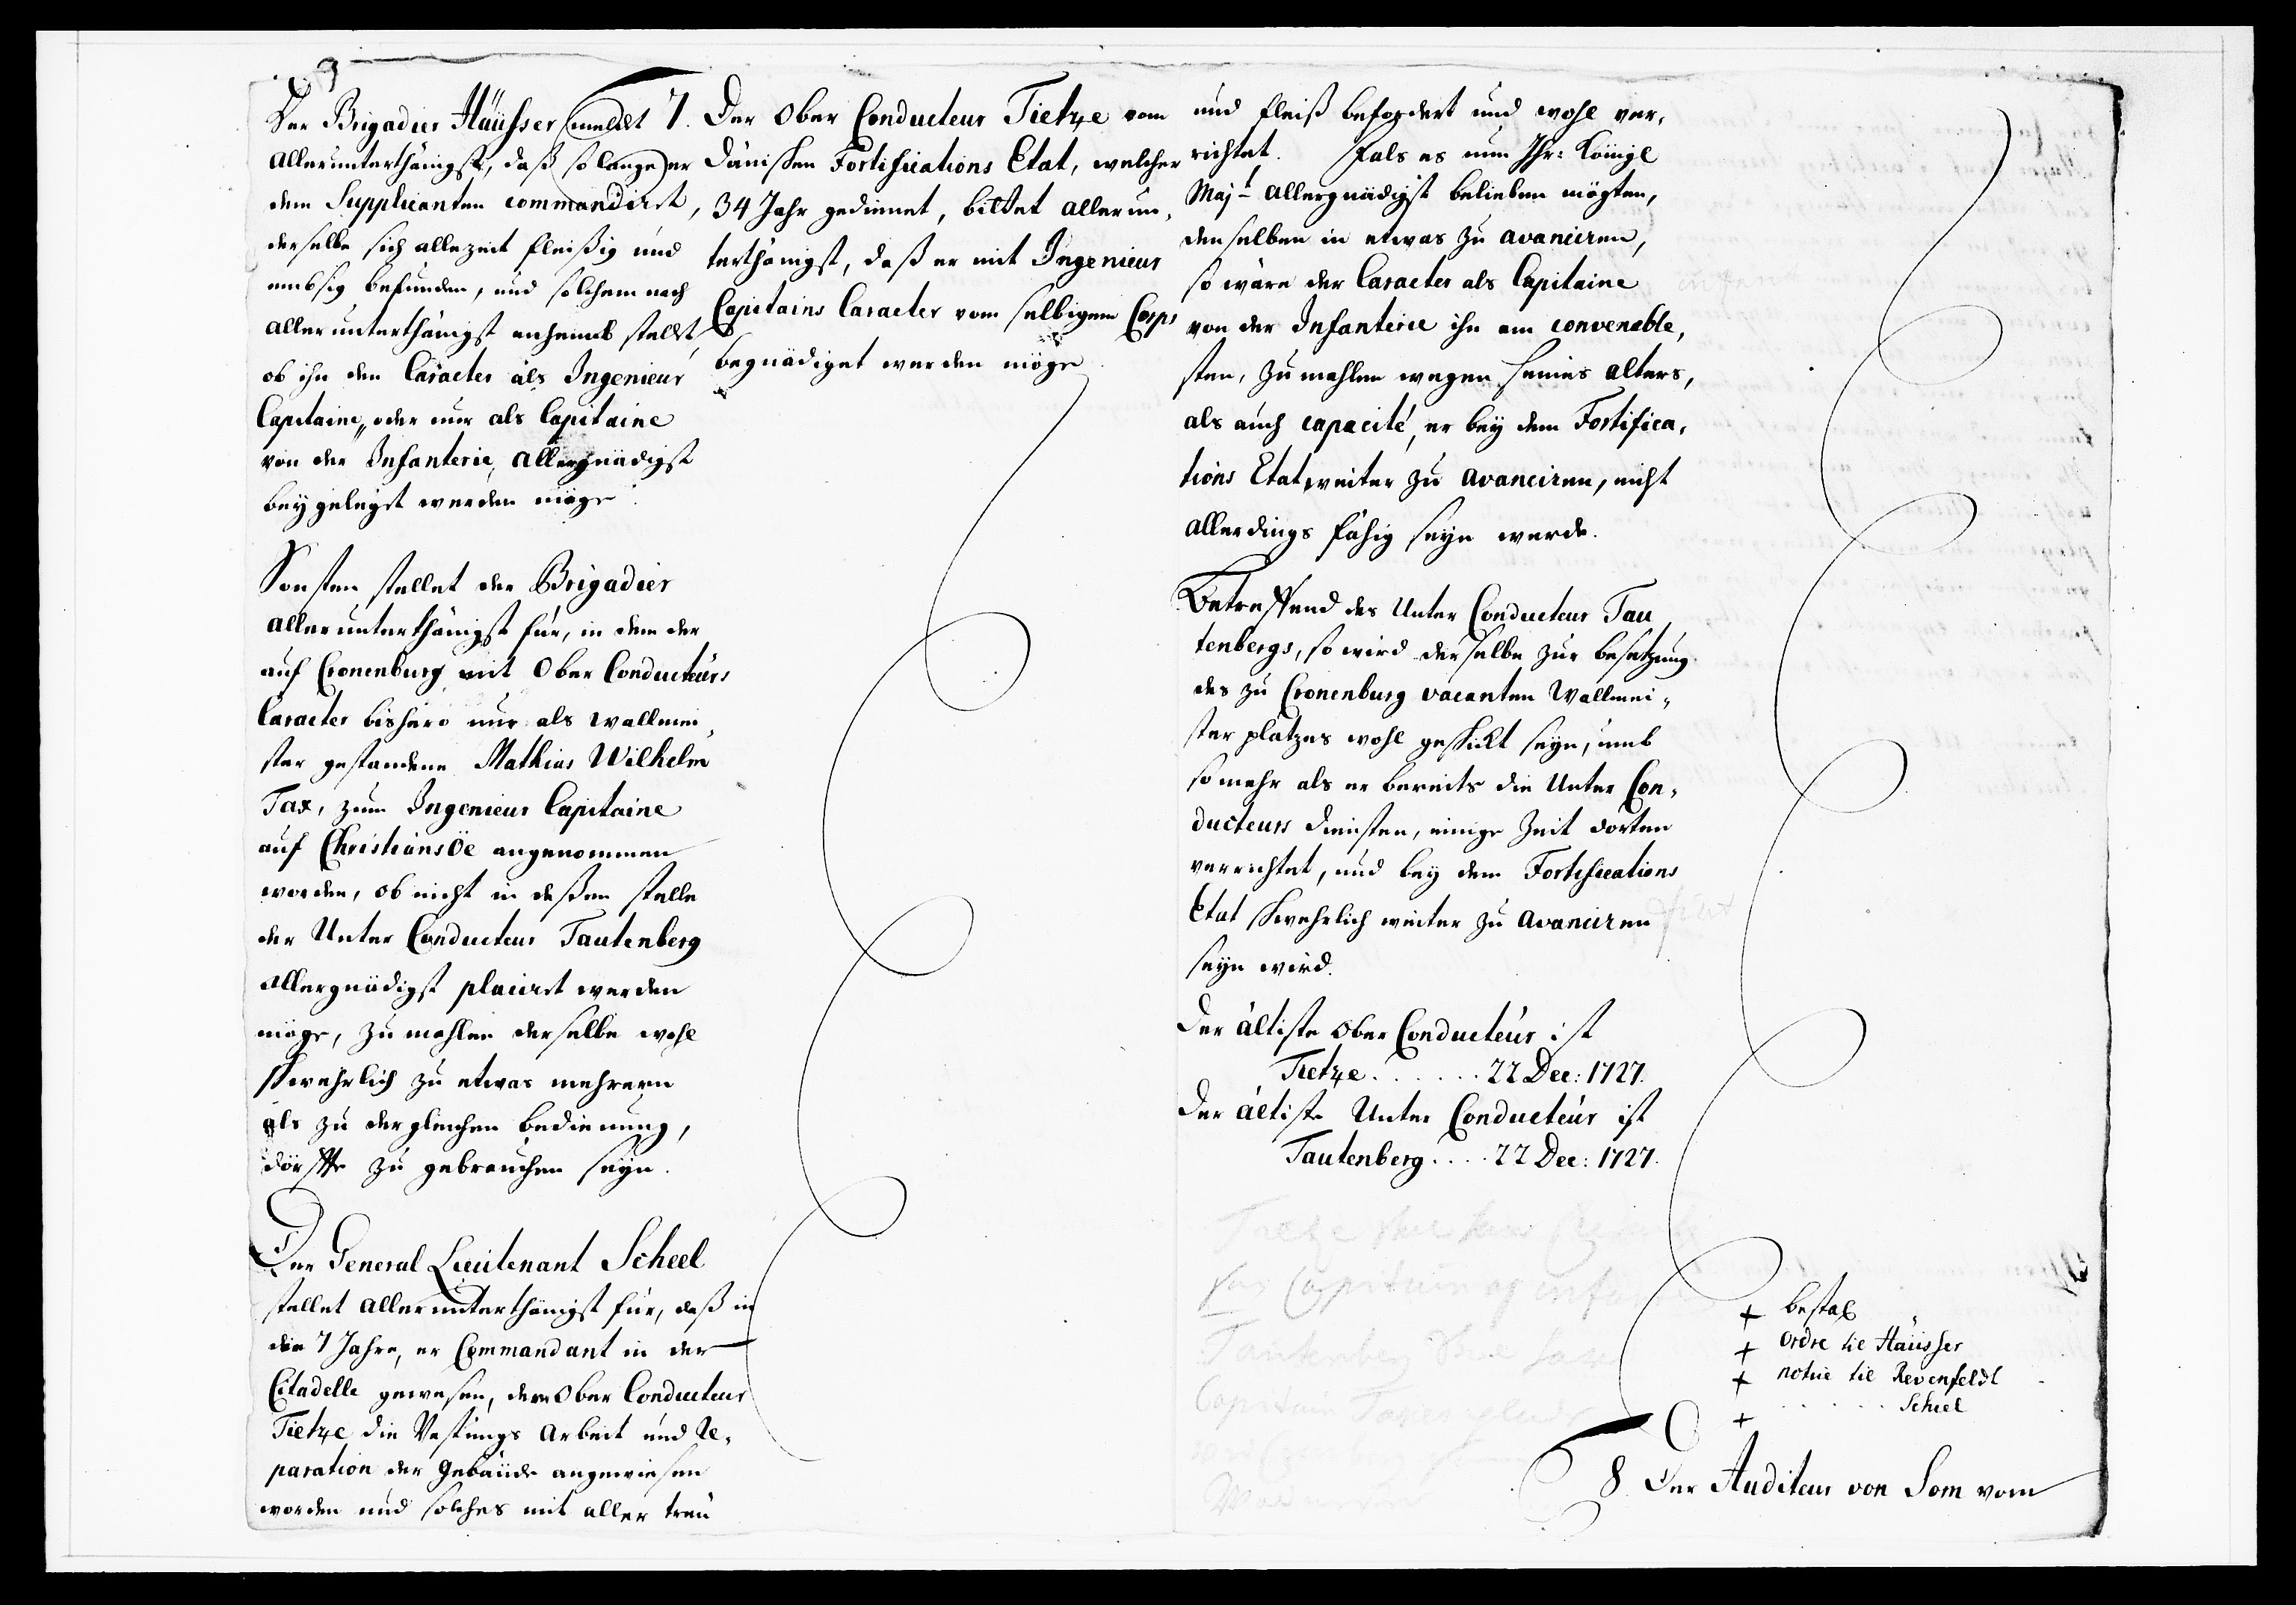 Der Brigadier Häüsser meldet
allerunterthänigst, daß so lange er
dem Supplicanten commandirt,
derselbe sich allezeit fleißig und
embsig befunden, und solchem nach
allerunterthänigst anheimb stellet,
ob ihn den Caracter als Ingenieur
Capitaine, oder nur als Capitaine
von der Infanterie, allergnädigst
beygelegt werden möge.
Sonsten stellet der Brigadier
allerunterthänigst für, in dem der
auf Cronenburg mit Ober Conducteurs
Caracter bishero nur als Wallmei-
ster gestandene Mathias Wilhelm
Tax, zum Ingenieur Capitaine
auf Christiansöe angenommen
worden, ob nicht in deßen stelle
der Unter Conducteur Tautenberg
allergnädigst placirt werden
möge, zumahlen derselbe wohl
schwehrlich zu etwas mehrern
als zu dergleichen bedienung,
dörffte zu gebrauchen seyn.
Der General Lieutenant Scheel
stellet allerunterthänigst für, daß in
die 7 Jahre, er Commandant in der
Citadelle gewesen, dem Ober Conducteur
Tietze die Vestungs Arbeit und Re-
paration der Gebäude angewiesen
worden und solches mit aller treu
7. Der Ober Conducteur Tietze vom
Dänischen Fortifications Etat, welcher
34 Jahr gedienet, bittet allerun-
terthänigst, daß er mit Ingenieur
Capitains Caracter vom selbigem Corps
begnädiget werden möge
und fleiß befordert und wohl ver-
richtet. Fals es nun Ihr: Königl
Majt allergnädigst belieben mögten,
denselben in etwas zu avanciren,
so wäre der Caracter als Capitaine
von der Infanterie ihn am convenable-
sten, zumahlen wegen seines alters,
als auch capacité, er bey dem Fortifica-
tions Etat weiter zu avanciren, nicht
allerdings fähig seyn werde.
Betreffend des Unter Conducteur Tau
tenbergs, so wird derselbe zur besetzung
des zu Cronenburg vacanten Wallmei-
ster platzes wohl geschickt seyn, umb
so mehr als er bereits die Unter Con-
ducteurs diensten, einige Zeit dorten
verrichtet, und bey dem Fortifications
Etat schwehrlich weiter zu avanciren
seyn wird.
Der ältiste Ober Conducteur ist
Tietze . . . . . . 22 Dec: 1727.
Der ältiste Unter Conducteur ist
Tautenberg . . . . 22 Dec: 1727.
Capitain
Tautenberg
+ bestal
+ ordre til Häüsser
+ notice til Revenfeldt
+ . . . . . . Scheel
8. Der Auditeur von Som vom